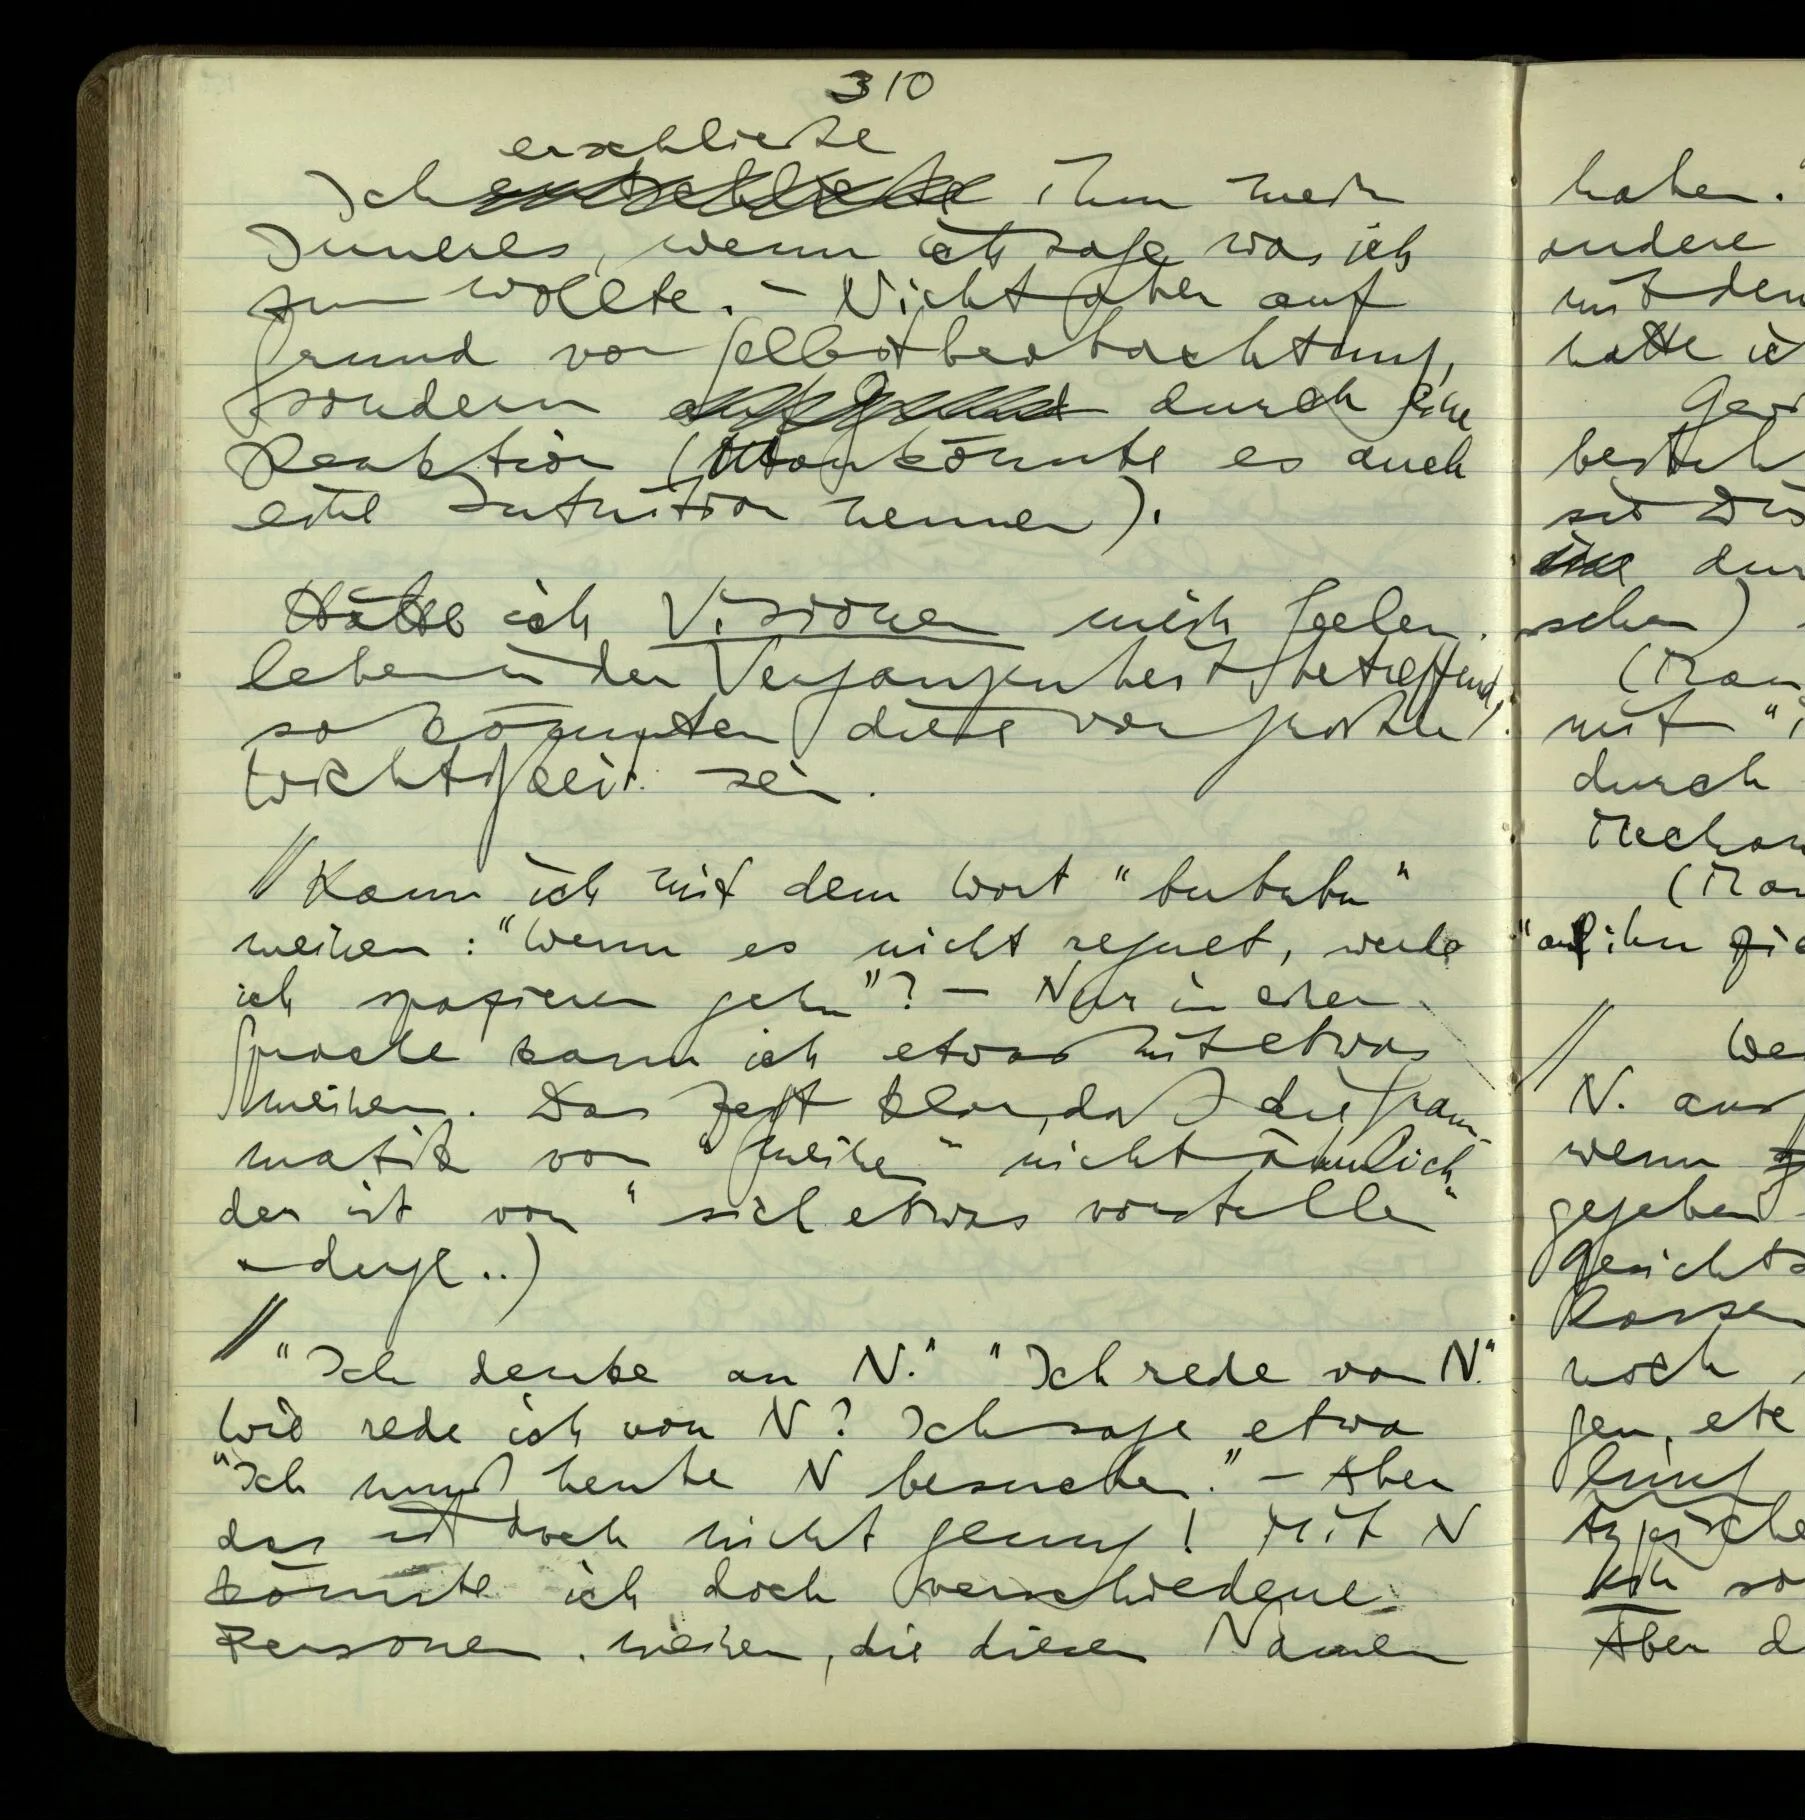 310
erschließe
Ich entschließe ihm mein
Inneres, wenn ich sage was ich
tun wollte. – Nicht aber auf
Grund von Selbstbeobachtung,
sondern auf Grund durch eine
Reaktion (Man könnte es auch
eine Intuition nennen).
Hätte ich Visionen mein Seelen-
leben in der Vergangenheit betreffend,
so könnten diese von großer
Wichtigkeit sein.
// Kann ich mit dem Wort "bububu"
meinen: "Wenn es nicht regnet, werde
ich spazieren gehn"? – Nur in einer
Sprache kann ich etwas mit etwas
meinen. Das zeigt klar, daß die Gram-
matik von "meinen" nicht ähnlich
der ist von "sich etwas vorstellen"
u. dergl..)
// "Ich denke an N." "Ich rede von N."
Wie rede ich von N? Ich sage etwa
"Ich muß heute N besuchen." – Aber
das ist doch nicht genug! Mit N
könnte ich doch verschiedene
Personen meinen, die diesen Namen
haben."
andere
mit dem
hatte ic
besteh
durch
schen)
(Man
mit "
durch
Mechan
(Man
"auf ihn zie
// We
N. aus
wenn
gegeben
Gesichts
lassen
noch
gen, etc
typische
Aber d